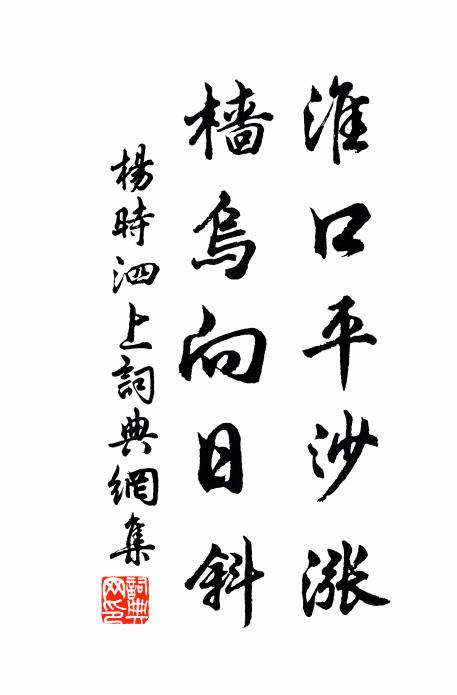 淮口平沙漲
檣烏向日斜
楊時泗上詞典網集
詞典網印